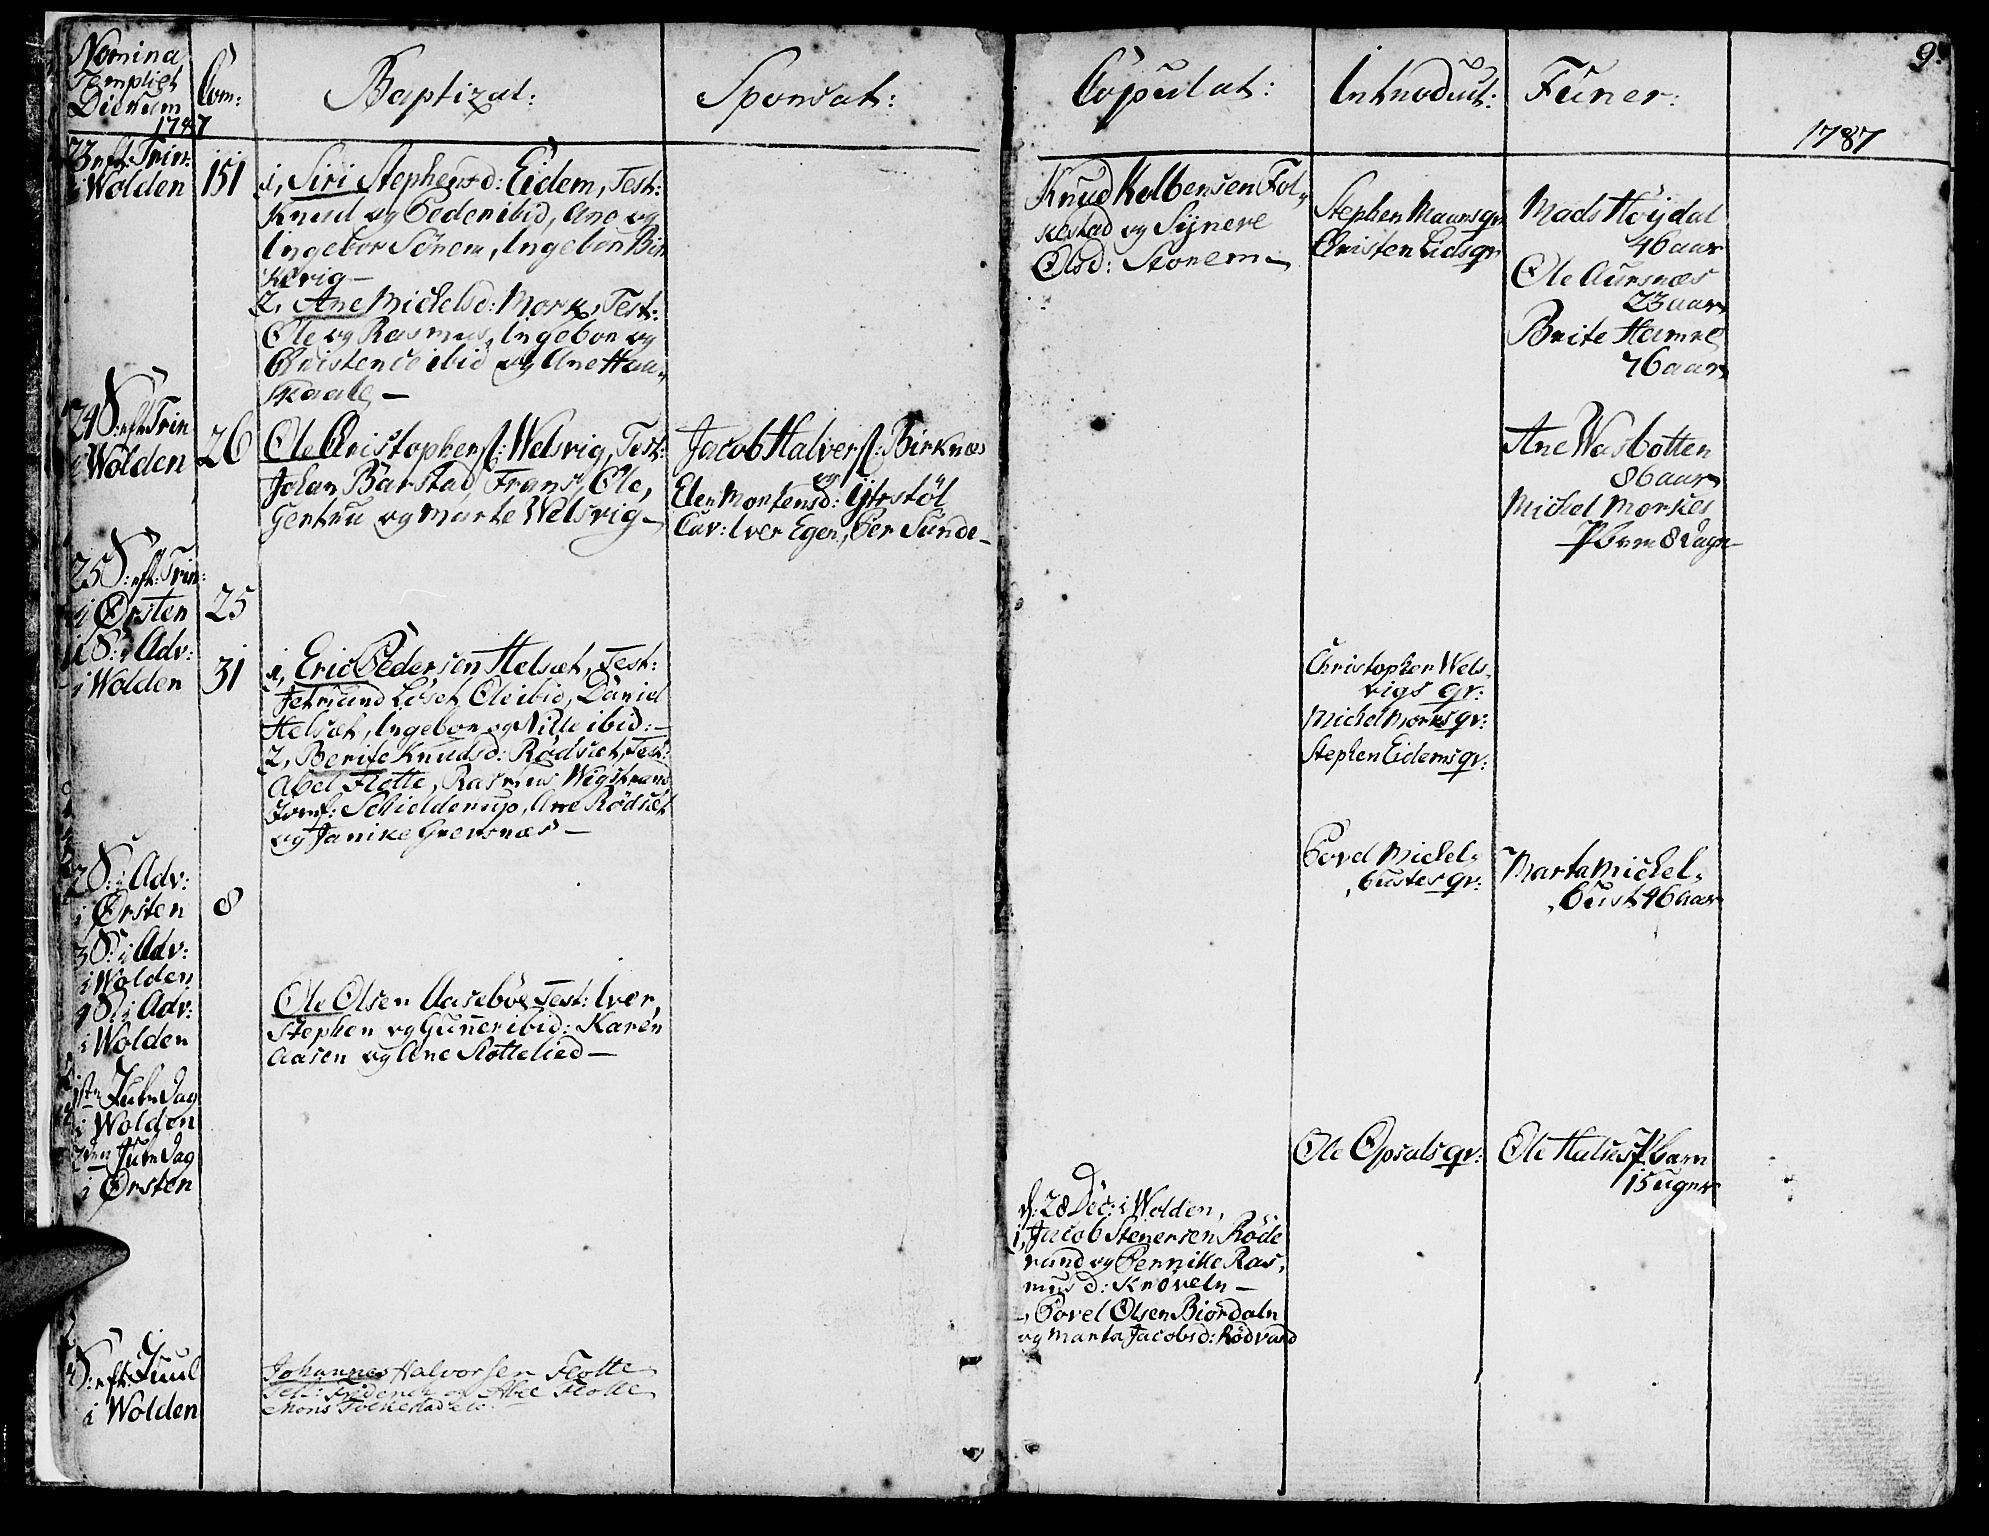 Nomina
Templi et
Dierum
1787
Com:
Baptizat:
Sponsat:
Copulat:
Introduct:
Funer:
9.
1787
23 eft: Trin:
i Wolden
151
1, Siri Stephensd: Eidem, Test:
Knud og Peder ibid, Ane og
Ingebor Sørem, Ingebor Bir
kevig —
2, Ane Michelsd: Mork, Test:
Ole og Rasmus, Ingebor og
Christence ibid og Ane Hau„
skaale, —
Knud Kolbensen Fol„
kestad og Synneve
Olsd: Storem —
Stephen Maursgr
Christen Eidsgr
Mads Høydal
46 aar
Ole Aursnæs
23 aar
Brite Hamre
76 aar
24 S: eft Trin
i Wolden
26
Ole Christophers: Welsvig, Test:
Johan Barstad, Frans, Ole,
Gertru og Marte Welsvig —
Jacob Halvers: Birknes
og
Elen Mortensd: Ytrstøl
Cav: Iver Egen, Per Sunde —
Ane Wasbotten
86 aar
Michel Morkes
Pbarn 8 Dage —
25 S: eft: Trin:
i Ørsten
25
1 S: i Adv:
i Wolden
31
1, Eric Pedersen Helset, Test:
Jetmund Løset, Ole ibid, Daniel
Helset, Ingebor og Nille ibid: —
2, Berite Knudsd: Rødset, Test:
Abel Flotte, Rasmus Wigstrand
Jomf: Schielderup, Ane Rødset
og Janike Grevsnæs —
Christopher Wels„
vigs gr:
Michel Morks gr:
Stephen Eidems gr:
2 S: i Adv:
i Ørsten
8
Povel Michel„
bustes gr:
Marta Michel„
bust 46 aar
3 S: i Adv:
i Wolden
4 S: i Adv:
i Wolden
Ole Olsen Aasebøe, Test: Iver,
Stephen og Gunner ibid: Karen
Aasen og Ane Slottelied —
1ste Jule Dag
i Wolden
2den Jule Dag
i Ørsten
Ole Opsals gr:
Ole Pbarn
15 uger
d: 28 Dec: i Wolden,
1, Jacob Stenersen Røde
vand og Pernille Ras„
musd: Krøveln —
Povel Olsen Biørdaln
og Marta Jacobsd: Rødvand
S: eft: Juul
i Wolden
Johannes Halvorsen Flotte
Test: Friderich og Abel Flotte
Mons Folkestad